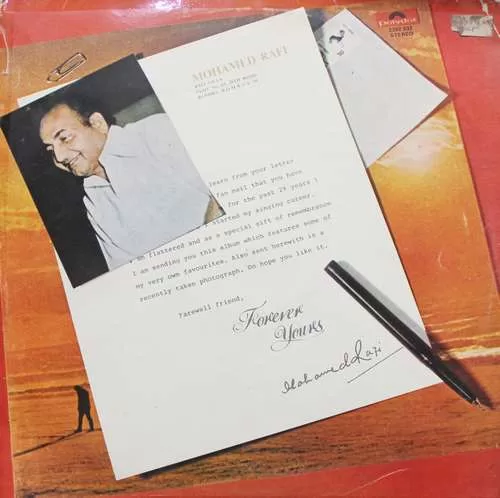 Polydor
2392 932
STEREO
MOHAMED RAFI
learn from your letter
fan mail that you have
for the past 29 years !
started my singing career.
am flattered and as a special gift of remembrance
I am sending you this album which features some of
my very own favourites. Also sent herewith is a
recently taken photograph. Do hope you like it.
Farewell friend,
Forever
Yours
Mohamed Rafi